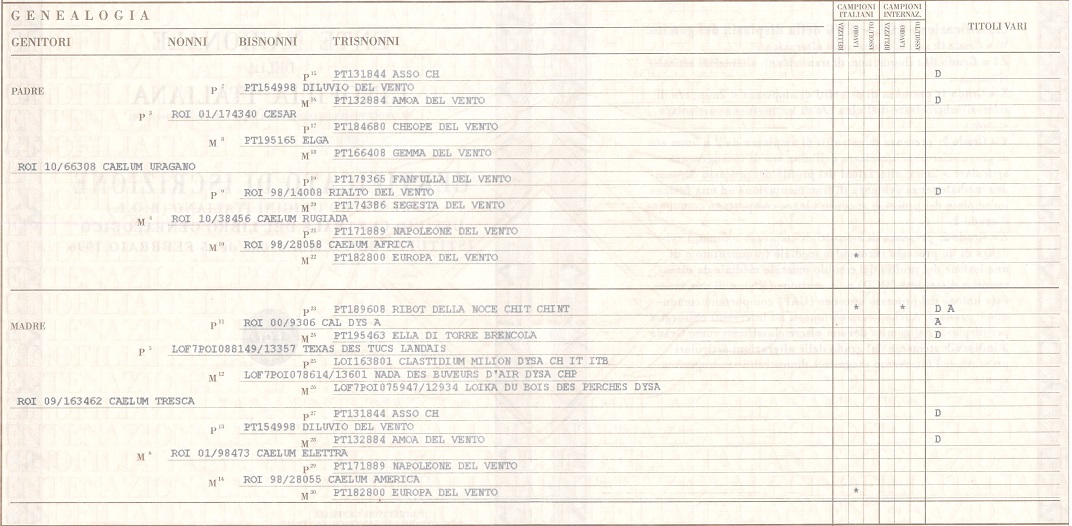 GENEALOGIA
CAMPIONI ITALIANI CAMPIONI INTERNAZ. TITOLI VARI
BELLEZZA LAVORO ASSOLUTO BELLEZZA LAVORO ASSOLUTO
GENITORI NONNI BISNONNI TRISNONNI
P 15 PT131844 ASSO CH D
PADRE P 7 PT154998 DILUVIO DEL VENTO
M 16 PT132884 AMOA DEL VENTO D
P 3 ROI 01/174340 CESAR
P 17 PT184680 CHEOPE DEL VENTO
M 8 PT195165 ELGA
M 18 PT166408 GEMMA DEL VENTO
ROI 10/66308 CAELUM URAGANO
P 19 PT179365 FANFULLA DEL VENTO
P 9 ROI 98/14008 RIALTO DEL VENTO D
M 20 PT174386 SEGESTA DEL VENTO
M 4 ROI 10/38456 CAELUM RUGIADA
P 21 PT171889 NAPOLEONE DEL VENTO
M 10 ROI 98/28058 CAELUM AFRICA
M 22 PT182800 EUROPA DEL VENTO *
P 23 PT189608 RIBOT DELLA NOCE CHIT CHINT * * D A
MADRE P 11 ROI 00/9306 CAL DYS A A
M 24 PT195463 ELLA DI TORRE BRENCOLA D
P 5 LOF7POI088149/13357 TEXAS DES TUCS LANDAIS
P 25 LOI163801 CLASTIDIUM MILION DYSA CH IT ITB
M 12 LOF7POI078614/13601 NADA DES BUVEURS D'AIR DYSA CHP
M 26 LOF7POI075947/12934 LOIKA DU BOIS DES PERCHES DYSA
ROI 09/163462 CAELUM TRESCA
P 27 PT131844 ASSO CH D
P 13 PT154998 DILUVIO DEL VENTO
M 28 PT132884 AMOA DEL VENTO D
M 6 ROI 01/98473 CAELUM ELETTRA
P 29 PT171889 NAPOLEONE DEL VENTO
M 14 ROI 98/28055 CAELUM AMERICA
M 30 PT182800 EUROPA DEL VENTO *